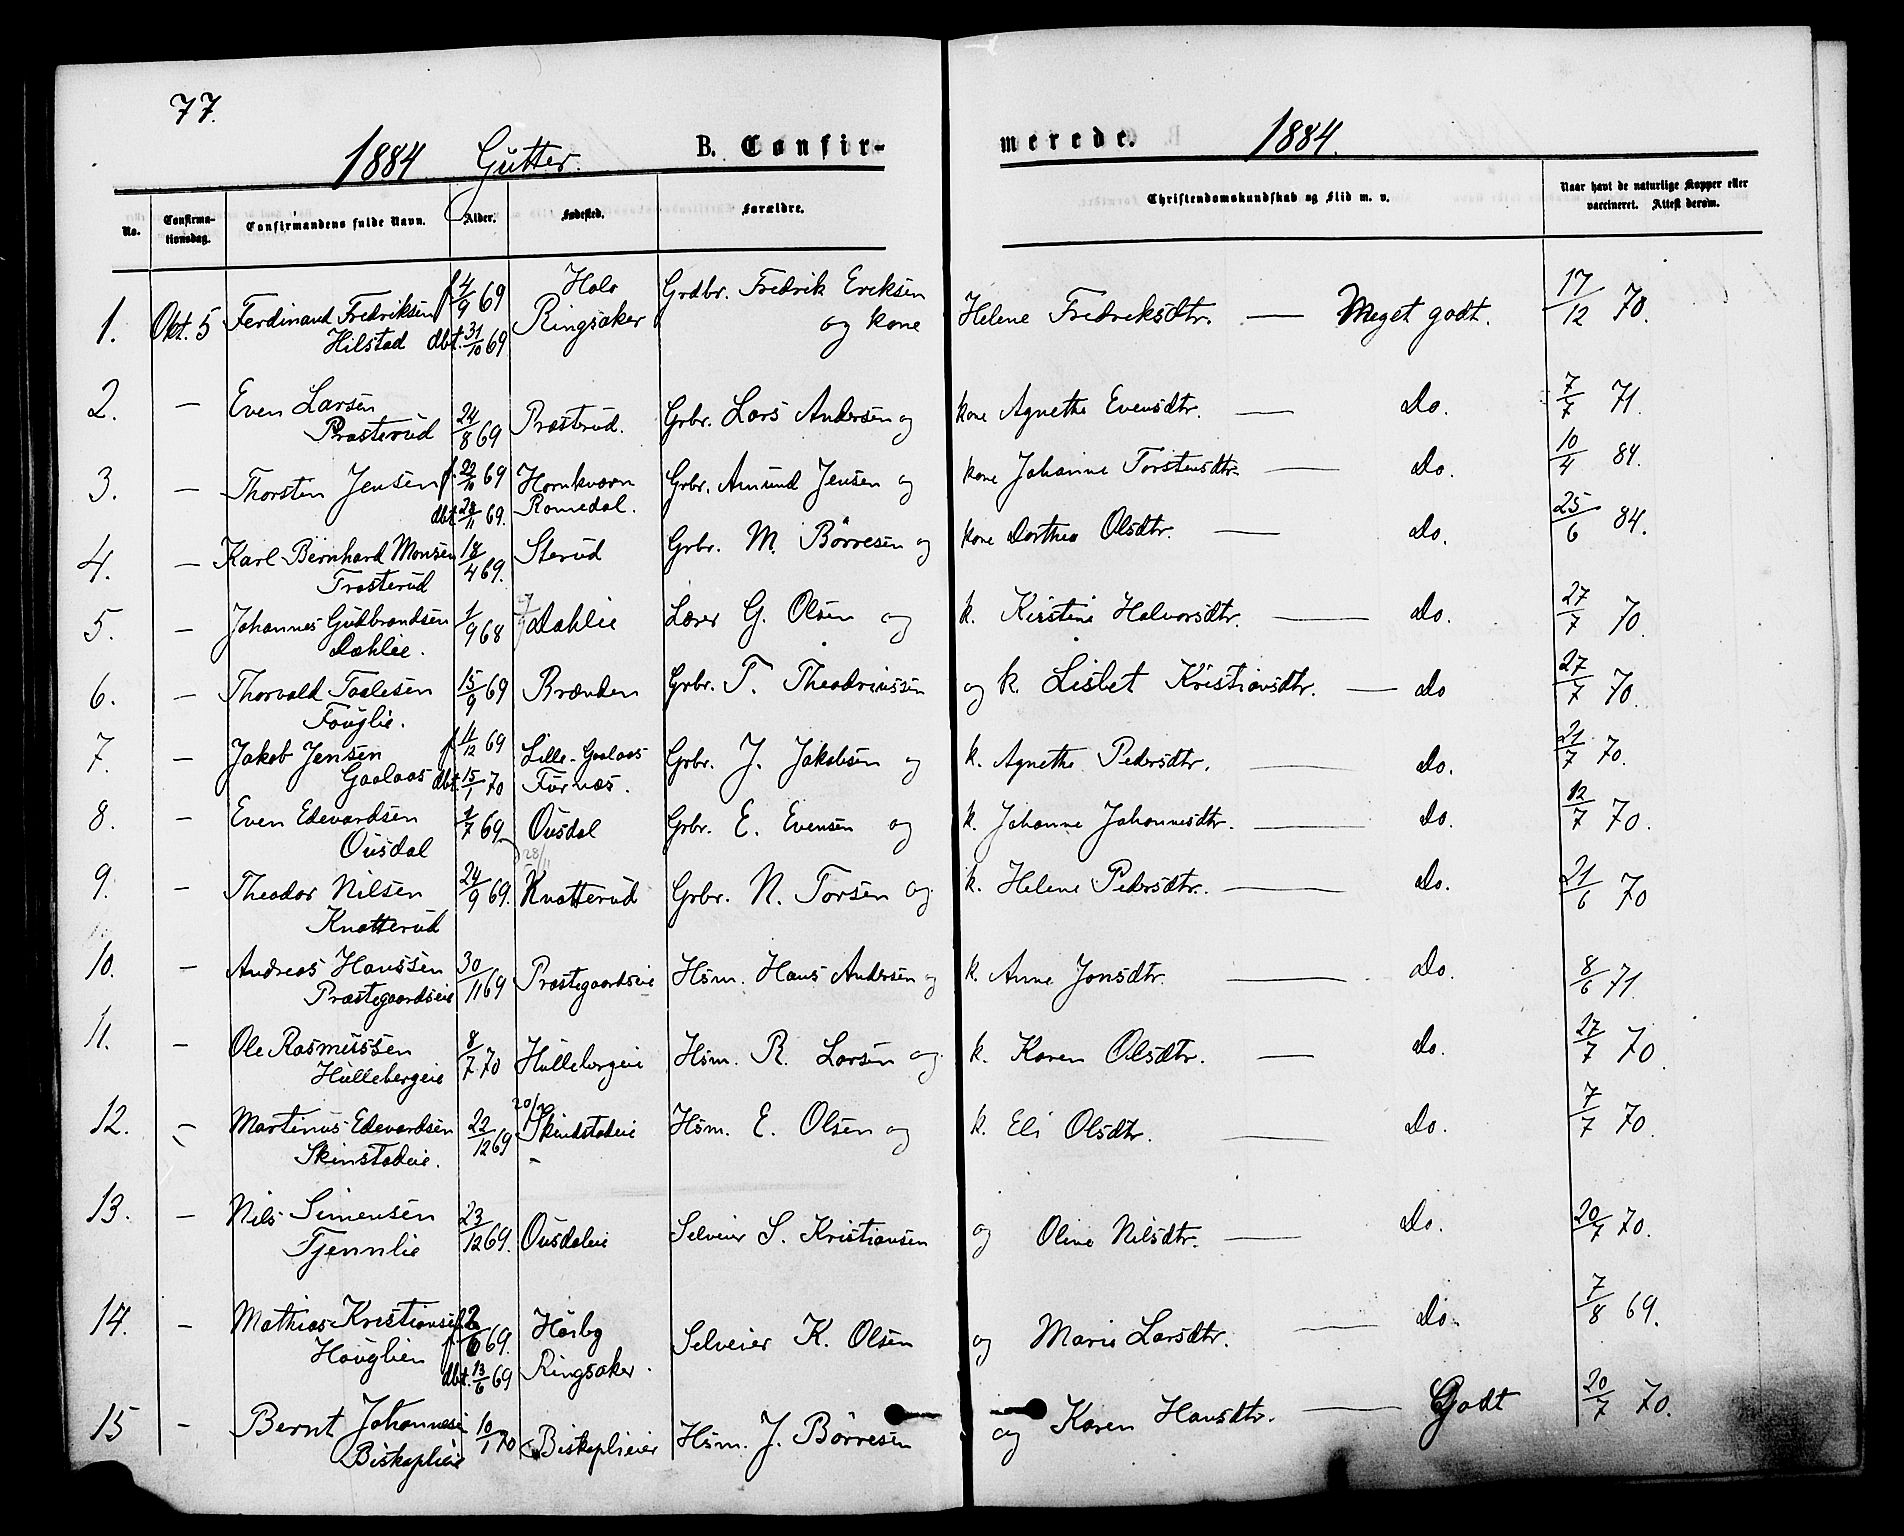 77.
1884 Gutter. B. Confir-
merede. 1884.
No. Confirma-tionsdag. Confirmandens fulde Navn. Alder. Fødested. Forældre. Christendomskundskab og Flid m. v. Naar havt de naturlige Kopper eller vaccineret. Attest derom.
1. Okt. 5 Ferdinand Fredriksen f. 4/9 69 Ringsaker Grdbr. Fredrik Eriksen
Hilstad dbt. 31/10 69 og kone Helene Fredriksdtr. — Meget godt. 17/12 70.
2. — Even Larsen
Præsterud 24/8 69 Præsterud. Grbr. Lars Andersen og kone Agnethe Evensdtr. — Do. 7/7 71.
3. — Thorsten Jensen f. 69 Hornkværn Grbr. Amund Jensen og kone Johanne Torstensdtr. — Do. 10/4 84.
dbt. 69. Romedal.
4. — Karl Bernhard Monsen 18/4 69. Sterud Grbr. M. Børresen og kone Dorthea Olsdtr. — Do. 25/6 84.
Trosterud
5. — Johannes Gudbrandsen 1/9 68 Dahlie Lærer G. Olsen og k. Kirstine Halvorsdtr. — Do. 27/7 70.
Dæhlie.
6. — Thorvald Taalesen 15/9 69 Brænden Grbr. T. Theodriussen og k. Lisbet Kristiansdtr. — Do 27/7 70.
Fouglie.
7. — Jakob Jensen f. 11/12 69 Lille-Gaalaas Grbr. J. Jakobsen og k. Agnethe Pedersdtr. — Do. 21/7 70.
Gaalaas dbt. 15/1 70 Furnæs.
8. — Even Edevardsen 69. Ousdal Grbr. E. Evensen og k. Johanne Johannesdtr. — Do. 12/7 70.
Ousdal
28/11
9. — Theodor Nilsen 24/9 69. Knatterud Grbr. N. Torsen og k. Helene Pedersdtr. — Do. 21/6 70
Knatterud
10. — Andreas Hanssen 30/11 69 Præstegaardseie Hsm. Hans Andersen og k. Anne Jonsdtr. — Do. 8/6 71.
Præstegaardseie
11. — Ole Rasmussen 8/7 70 Hullebergeie Hsm. R. Larsen og k. Karen Olsdtr. — Do. 27/7 70.
Hullebergeie
12. — Martinus Edevardsen 22/12 69. Skindstadeie Hsm. E. Olsen og k. Eli Olsdtr. — Do. 7/7 70.
Skinstadeie.
13. — Nils Simensen 23/12 69. Ousdaleie Selveier S. Kristiansen og Oline Nilsdtr. — Do. 20/7 70.
Tjennlie
14. — Mathias Kristiansen f. 69. Selveier K. Olsen og Marie Larsdtr. — Do. 7/8 69.
Houglien dbt. 13/6 69 Ringsaker.
15 — Bernt Johannesen 10/1 70 Biskoplieier Hsm. J. Børresen og Karen Hansdtr. — Godt 20/7 70.
Biskoplieie